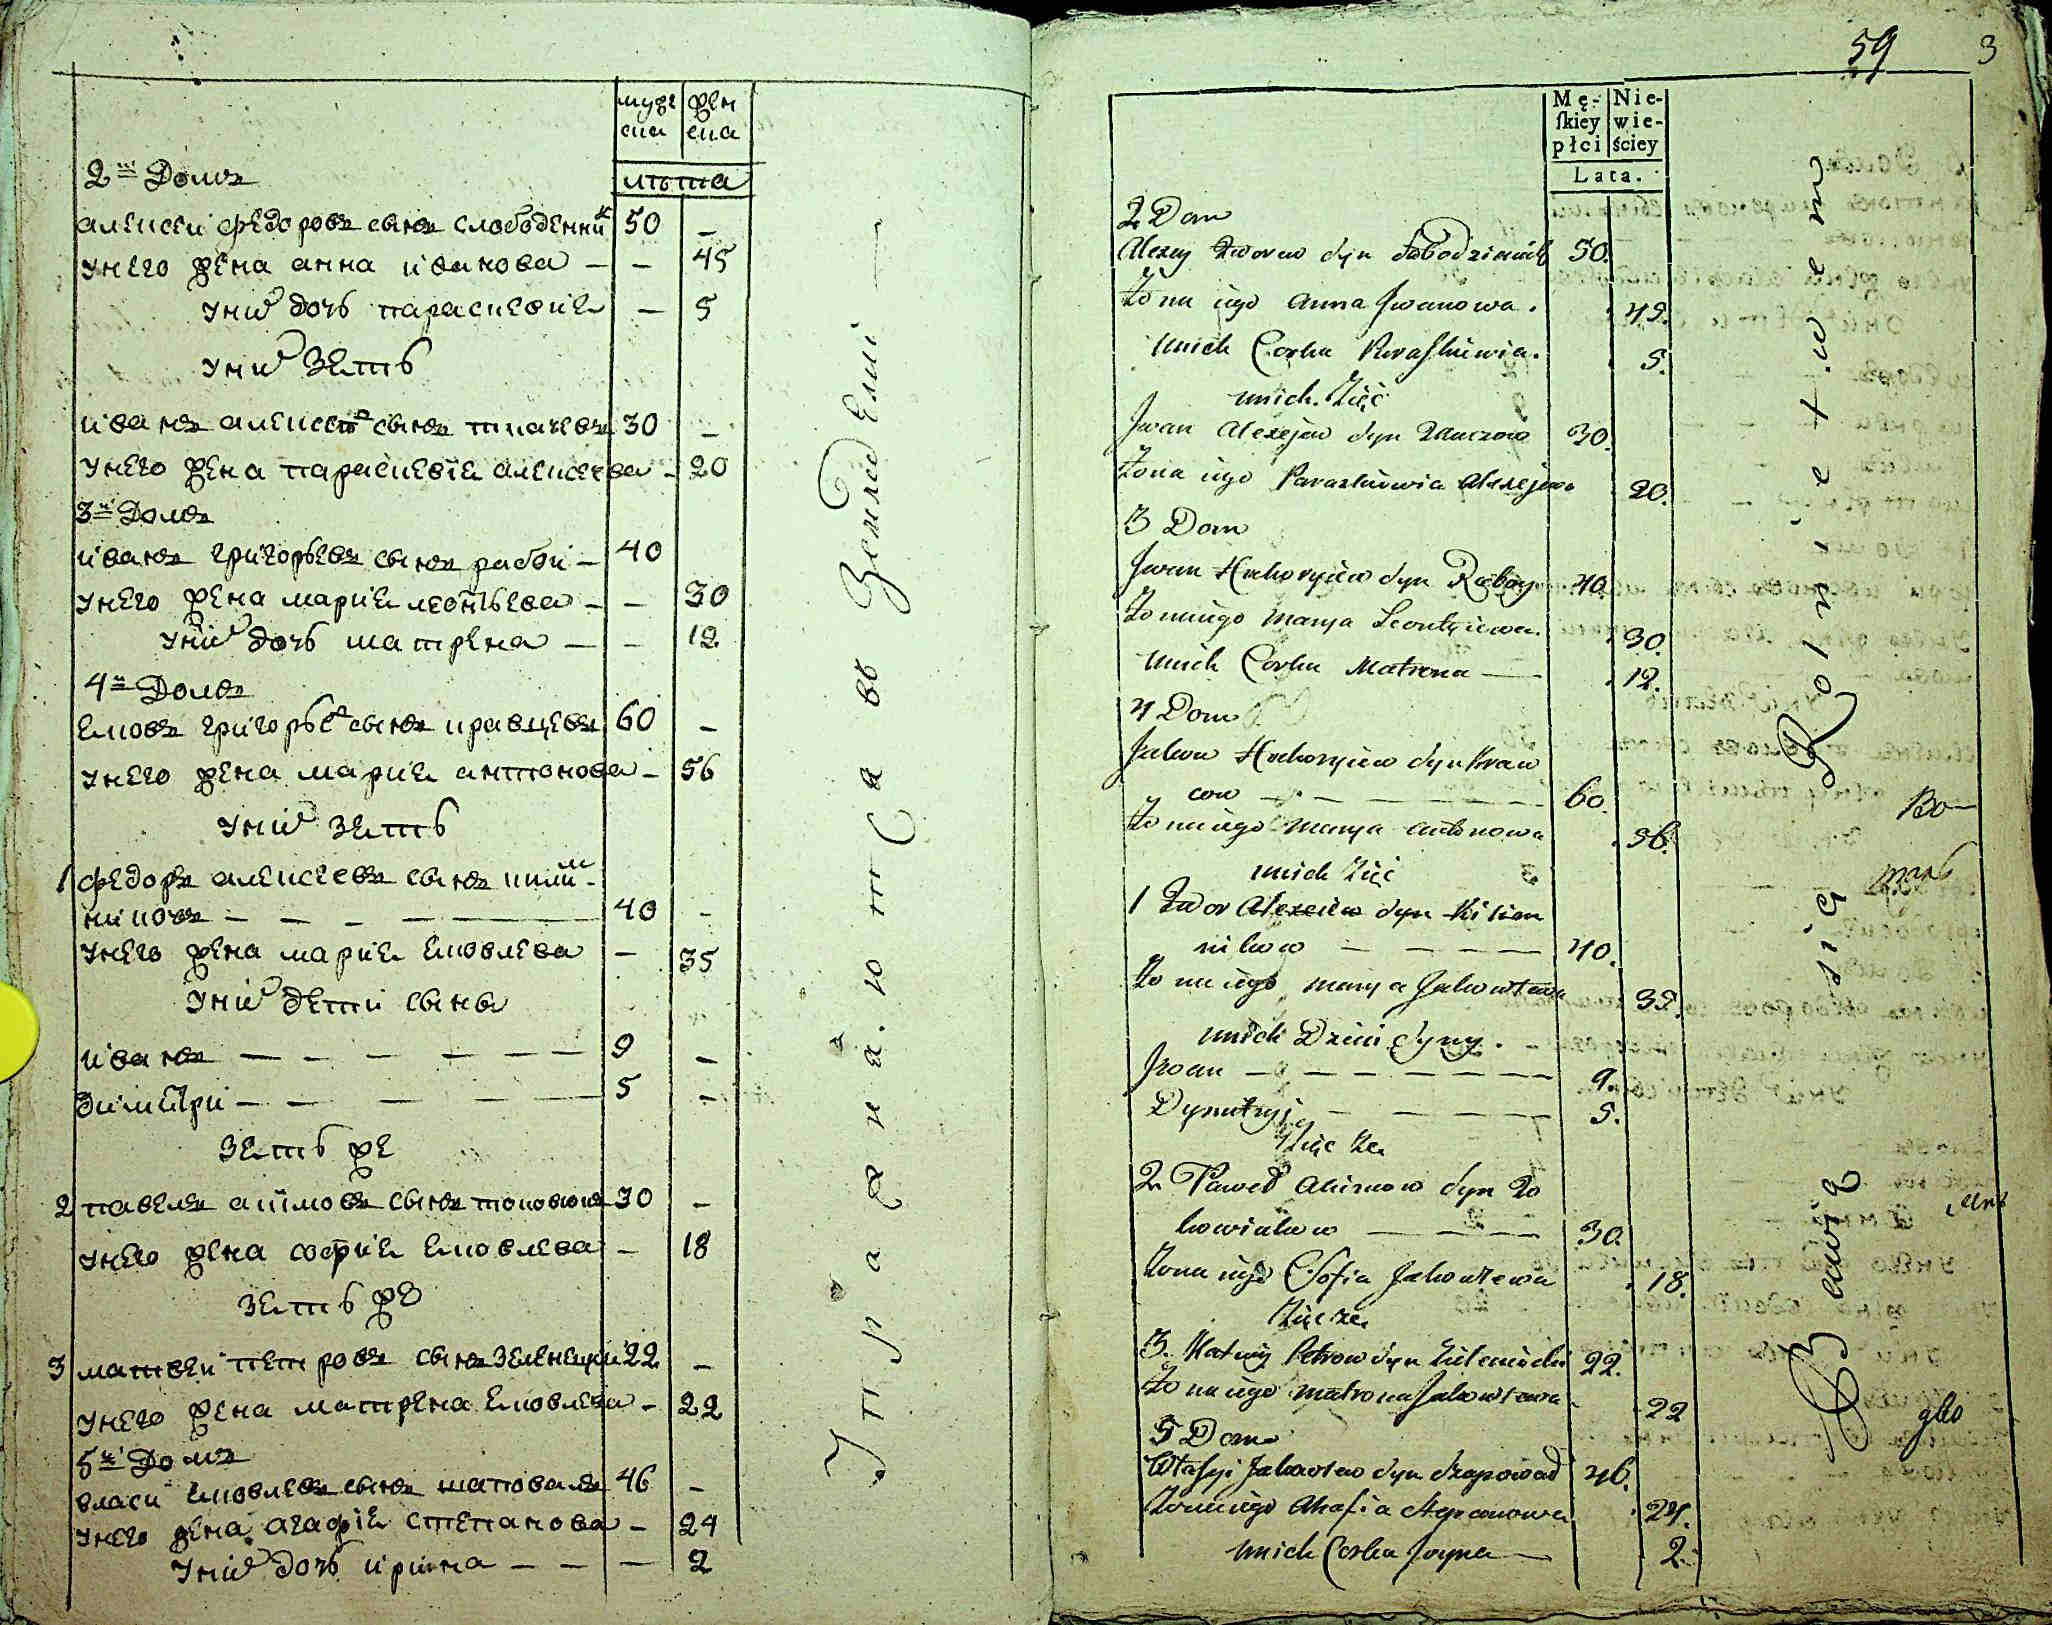 муже
ска
жен
ска
лѣта
2й Домъ
алексеи федоровъ сынъ слободенникъ 50 –
унего жена анна иванова – – 45
унихъ дочь параскевия – 5
унихъ зеть
иванъ алексеевъ сынъ ткачевъ 30 –
унего жена параскевіе алексеева – 20
3й Домъ
иванъ григорьевъ сынъ рабой – 40
унего жена марие леонтьева – – 30
унихъ дочь матрена – – 12
4й Домъ
яковъ григорьевъ сынъ кравцевъ 60 –
унего жена марие антонова – 56
унихъ зеть
1 федоръ алексеевъ сынъ килим-
никовъ – – – – 40 –
унего жена марие яковлева – 35
унихъ дети сынъ
иванъ – – – – – – 9 –
димитри – – – – – 5 –
зеть же
2 павелъ акимовъ сынъ токовюкъ 30 –
унего жена софие яковлева – 18
зеть же
3 матвеи петровъ сынъ зеленецки 22 –
унего жена матрена яковлева – 22
5й Домъ
власи яковлевъ сынъ шаповалъ 46 –
унего жена агафіе степанова – 24
унихъ дочь ирина – – – 2
Упражнаютса въ Земледелиі
59
3
Mę-
ſkiey
płci
Nie-
wie-
ściey
Lata.
2 Dom
Alexey Fedorow Syn Słobodzianik 50.
Zona iego Anna Jwanowa. 45.
Unich Corka Paraſkiewia. 5.
unich. Zięć
Jwan Alexejew Syn Tkaczow 30.
Zona iego Paraskiewia Alexejewa 20.
3 Dom
Jwan Hrehoryiew Syn Raboy 40.
Zona iego Marya Leontyiewa. 30.
Unich Corka Matrona 12.
4 Dom
Jakow Hrehoryiew Syn Kraw
cow – – – – – 60.
Zona iego Marya Antonowa 56.
unich Zięć
1 Fedor Alexeiew Syn Kiliem
nikow – – – – 40.
Zona iego Marya Jakowlewa 35.
unich Dzieci Syny.
Jwan – – – – – – – 9.
Dymitryj – – – – 5.
Zięc że
2. Paweł Akimow Syn To
kowiukow – – – 30.
Zona iego Sofia Jakowlewa 18.
Zięc że
3. Matwiy Petrow Syn Zielenicki 22.
Zona iego Matrona Jakowlewa 22
5 Dom
Własyi Jakowlew Syn Szapował 46.
Zona iego Ahafia Stepanowa 24.
Unich Corka Jryna 2.
Bawią się Rolnietwem